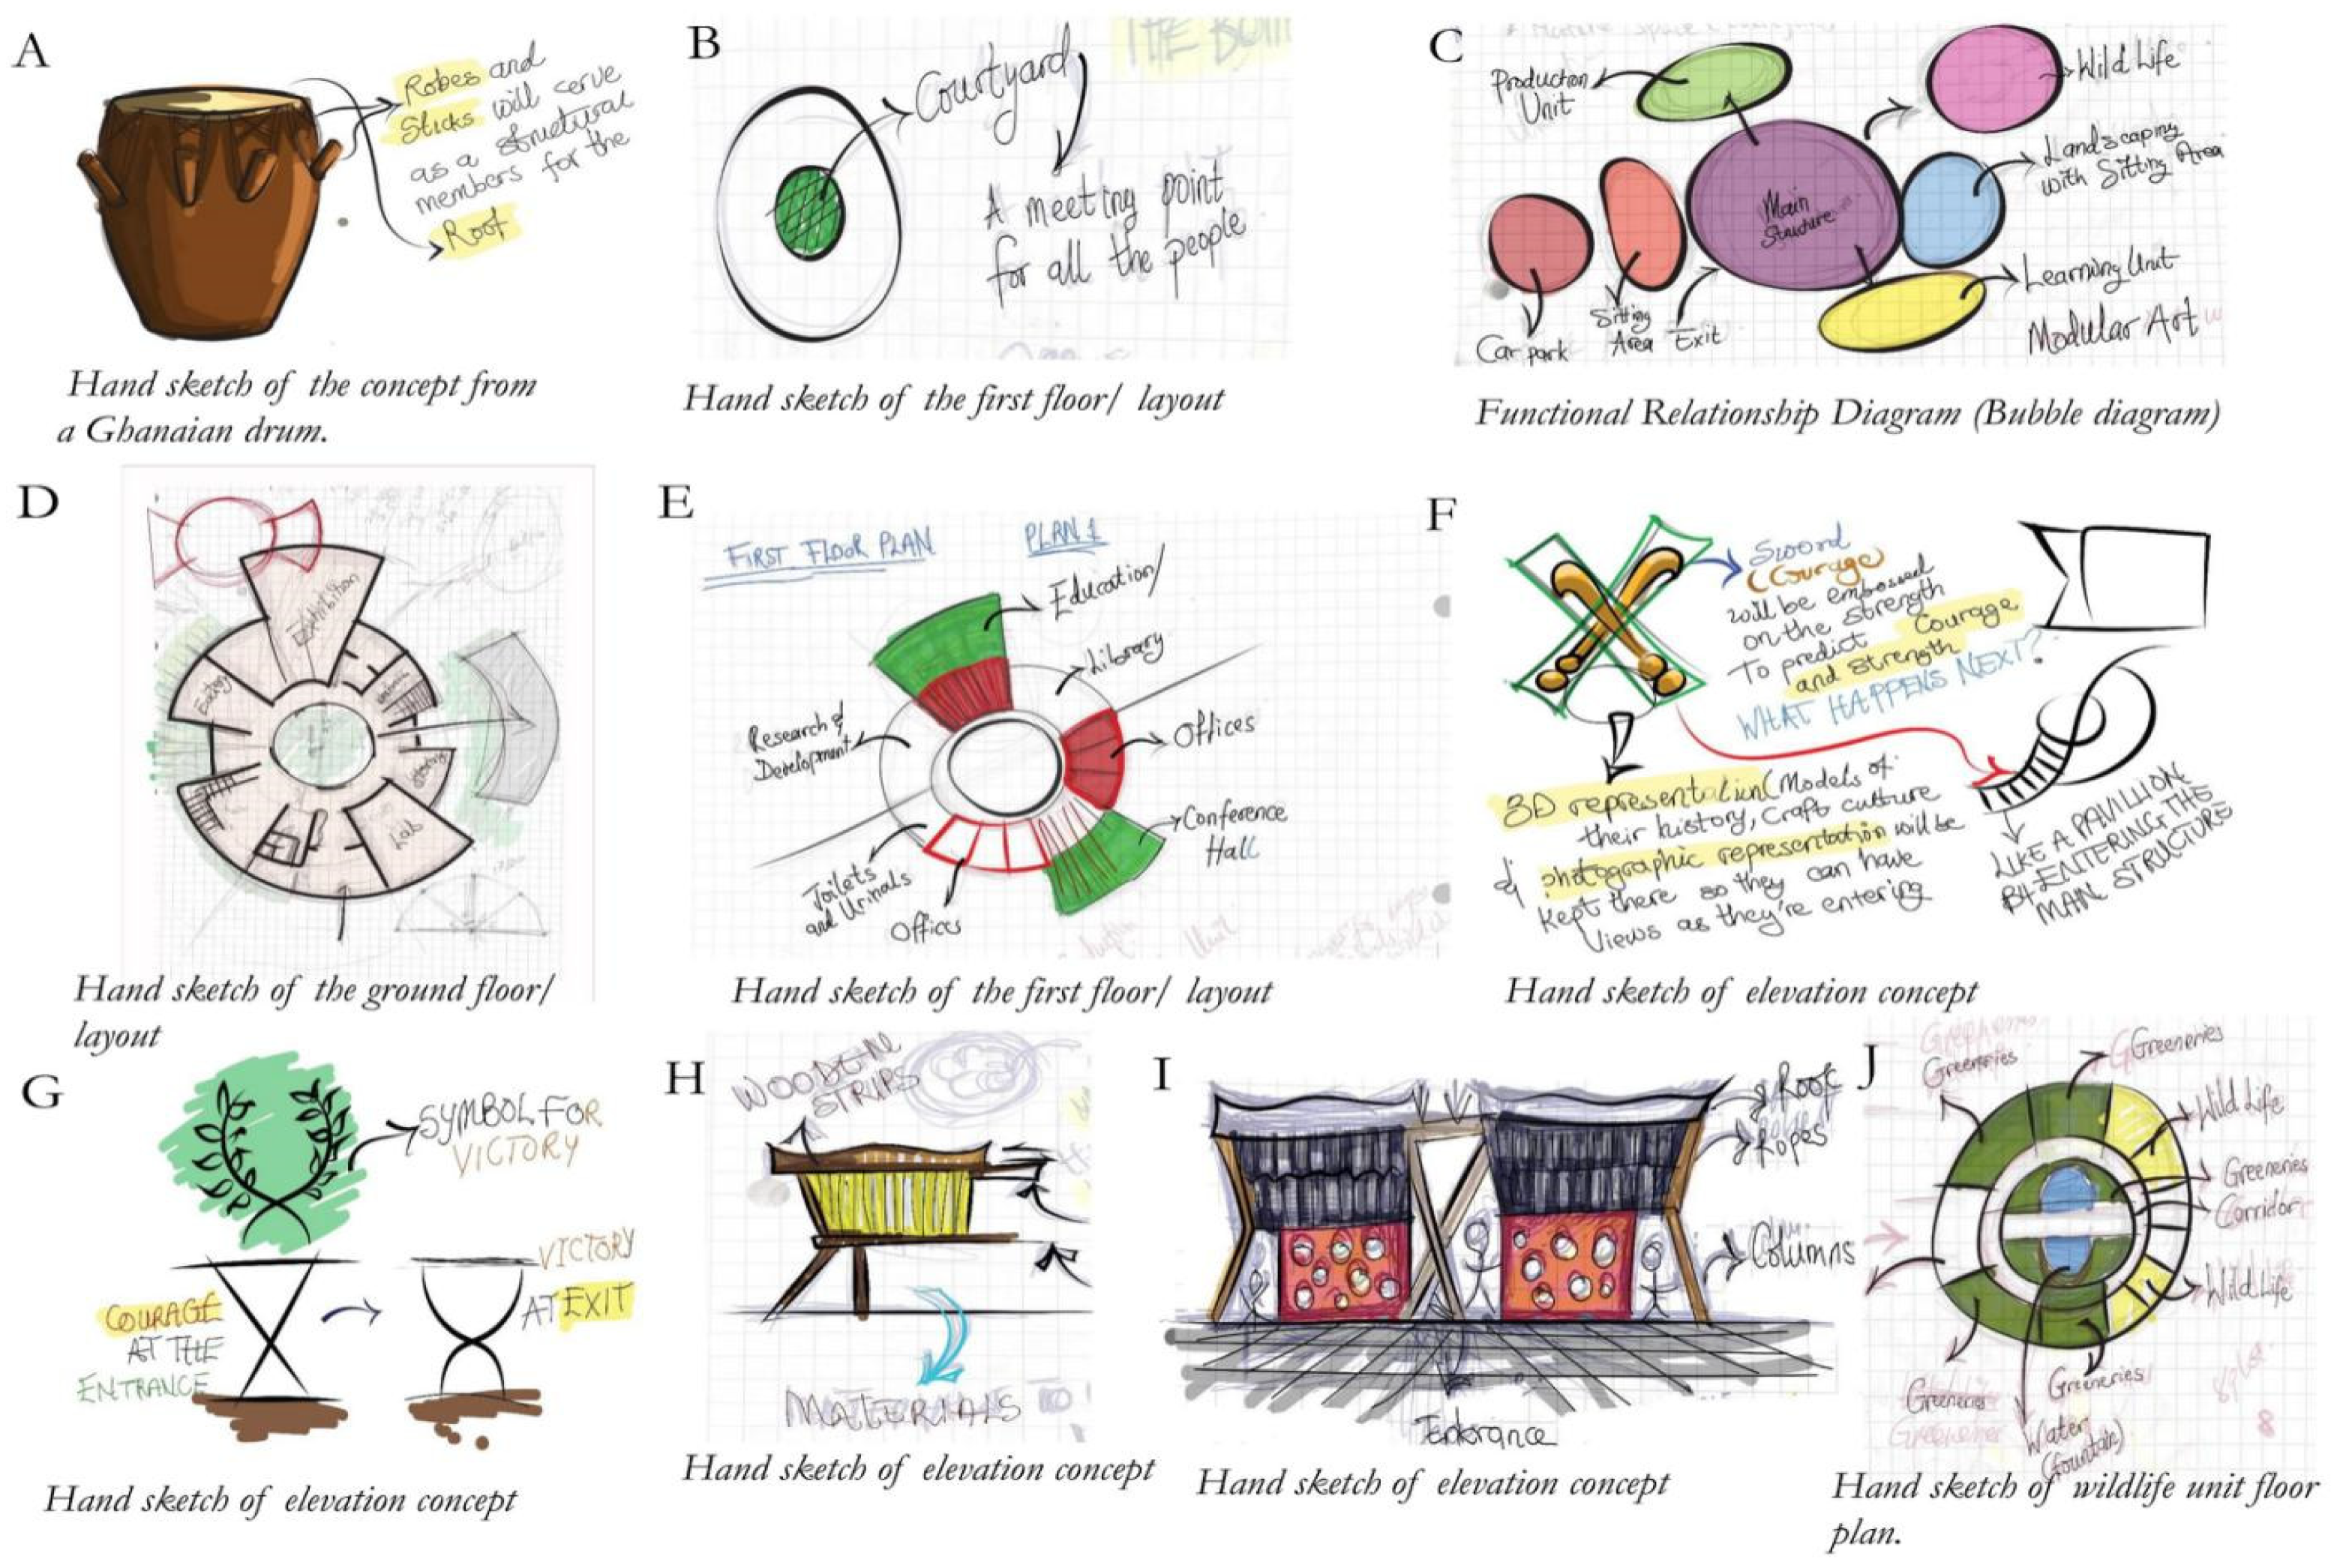 A
Robes and
Sticks will serve
as a structural
members for the
Roof
Hand sketch of the concept from
a Ghanaian drum.
B
THE
Courtyard
A meeting point
for all the people
Hand sketch of the first floor/ layout
C
Production
Unit
Wild Life
Landscaping
with Sitting Area
Main
Structure
Learning Unit
Modular Art
Car park
Sitting
Area
Exit
Functional Relationship Diagram (Bubble diagram)
D
Exhibition
Eatery
Lab
Hand sketch of the ground floor/
layout
E
FIRST FLOOR PLAN
PLAN 1
Education/
Library
Research &
Development
Offices
Conference
Hall
Toilets
and Urinals
Offices
Hand sketch of the first floor/ layout
F
Sword
(Courage)
will be embossed
on the strength
To predict Courage
and strength
WHAT HAPPENS NEXT?
3D representation (Models of
their history, Craft culture
& photographic representation will be
kept there so they can have
views as they're entering
LIKE A PAVILLION
B4 ENTERING THE
MAIN STRUCTURE
Hand sketch of elevation concept
G
SYMBOL FOR
VICTORY
COURAGE
AT THE
ENTRANCE
VICTORY
AT EXIT
Hand sketch of elevation concept
H
WOODEN
STRIPS
MATERIALS TO
Hand sketch of elevation concept
I
Roof
Ropes
Columns
Enterance
Hand sketch of elevation concept
J
Greeneries
Greeneries
Wild Life
Greeneries
Corridor
Wild Life
Greeneries
Greeneries
Water
(fountain)
8
Hand sketch of wildlife unit floor
plan.